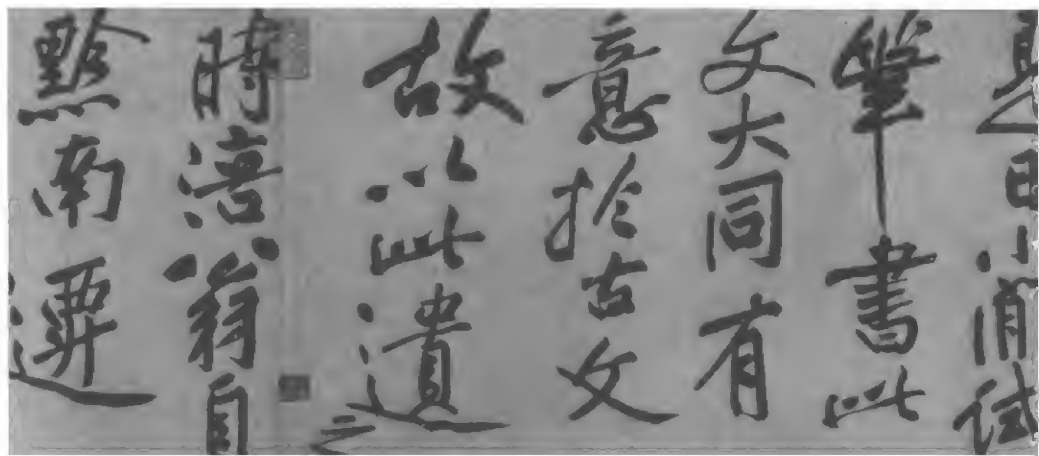 是日小閒試
筆書此
文大同有
意於古文
故以此遺之
時涪翁自
黔南遷